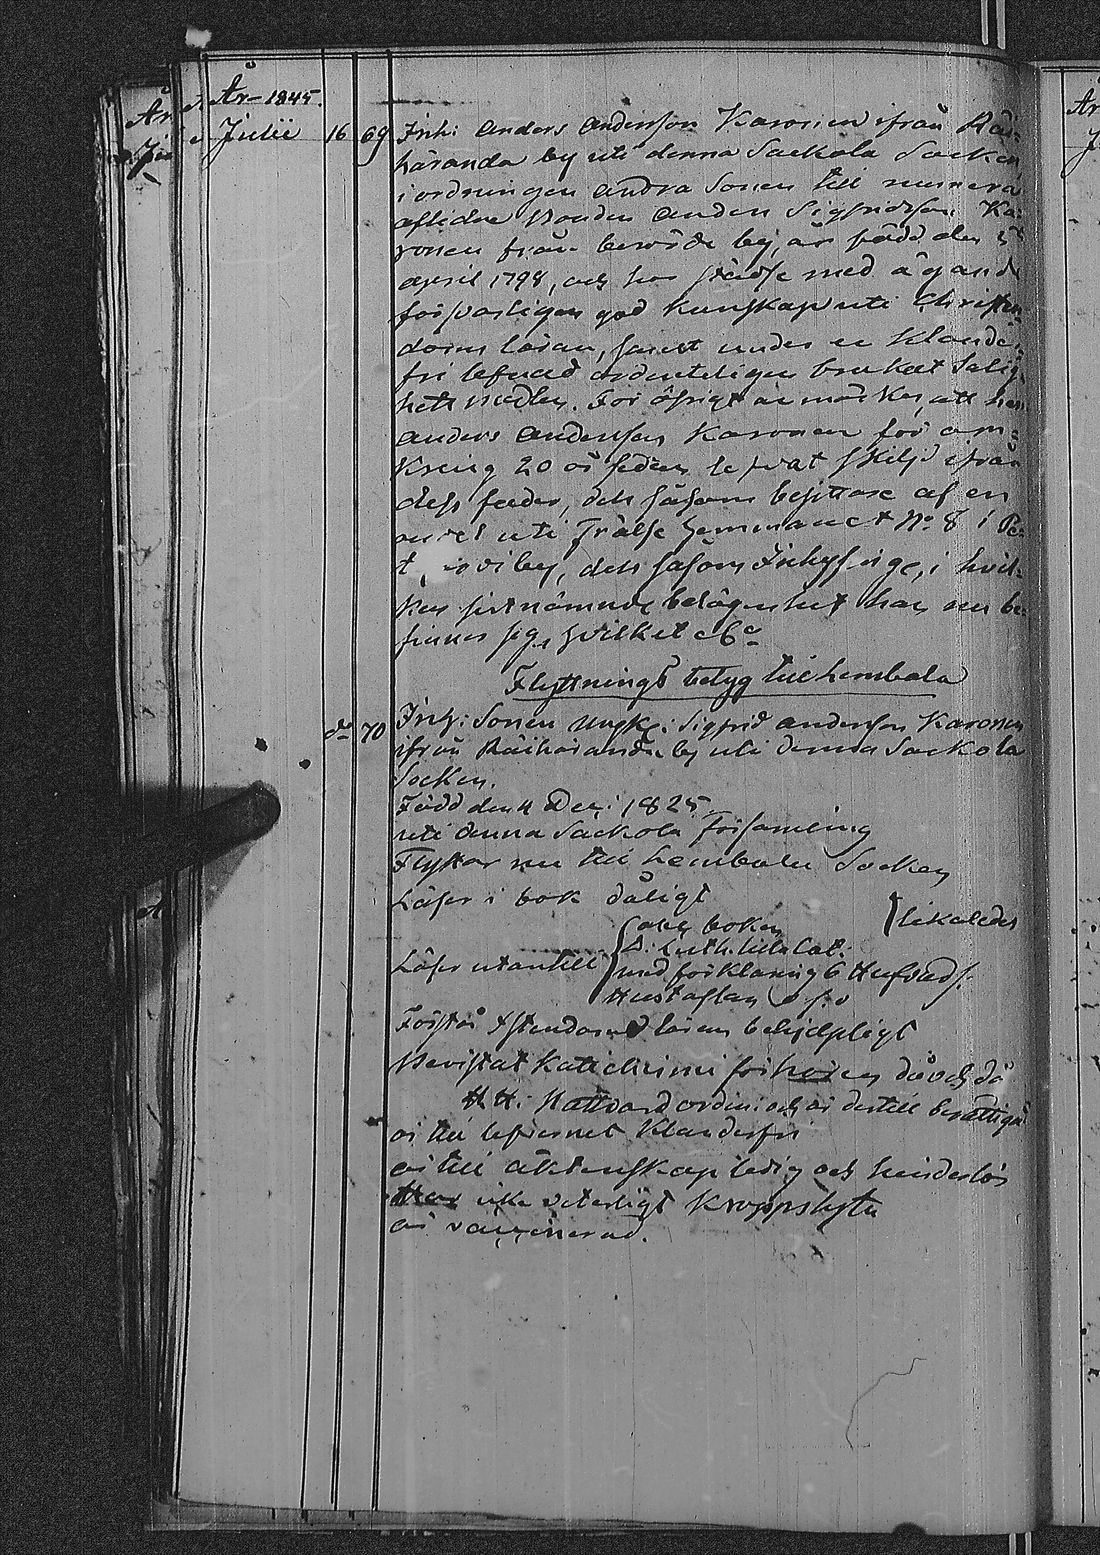 År 1845.
Julii 16 69 Inh: Anders Andersson Karonen ifrån Räi-
häranda by uti denna Sackola Socken
i ordningen andra Sonen till numera
aflidne Bonden Anders Sigfridsson Ka-
ronen från berörde by, är född den 5
April 1798, och har städse med ägande
försvarligen god kunskap uti Christen-
doms läran, samt under en klander-
fri lefnad ordenteligen brukat Salig-
hets medlen. För öfrigt är märka, att
Anders Andersson Karonen för om-
kring 20 år sedan lefvat skiljd ifrån
dess fader, dels såsom besittare af en
uti Frälse Hemmanet No 8 i
by, dels såsom Inhysinge, i hvil-
ken sistnämnde belägenhet han nu be-
finner sig, hvilket &c
Flyttnings betyg till Lembala
do 70 Inh: Sonen Ungk: Sigfrid Andersson Karonen
ifrån Räihäranda by uti denna Sackola
Socken.
Född den 4 Dec: 1825
uti denna Sackola församling
Flyttar nu till Lembala Socken
Läser i bok dåligt
Läser utantill abc boken
D: Luth. lilla Cat: likaledes
med förklaring
Hustaflan
Förstår Xstendoms läran behjelpligt
Bevistat Katechismi förhören då och då
H. H. Nattvard ordin: och är dertill berättigad
är till lefvernet klanderfri
är till äktenskap ledig och hinderlös
Har icke veterligt Kroppslyte
är vaccinerad.